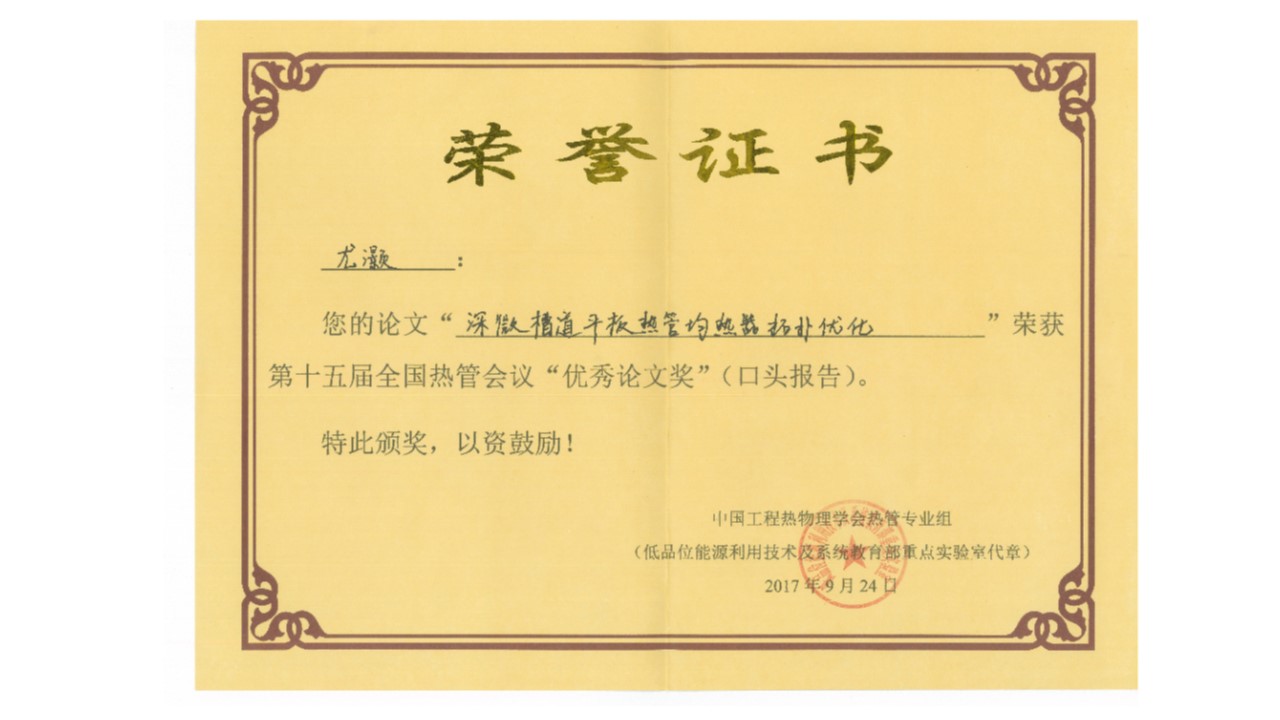 荣誉证书
尤灏：
您的论文“深微槽道平板热管均热器拓扑优化”荣获
第十五届全国热管会议“优秀论文奖”（口头报告）。
特此颁奖，以资鼓励！
中国工程热物理学会热管专业组
（低品位能源利用技术及系统教育部重点实验室代章）
2017 年 9 月 24 日